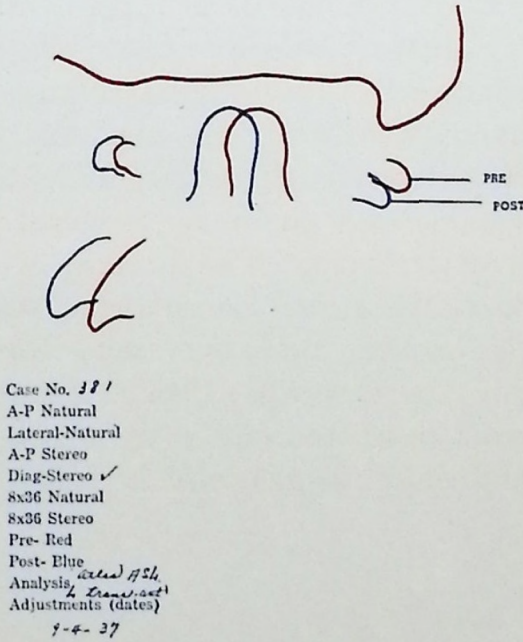 PRE
POST
Case No. 381
A-P Natural
Lateral-Natural
A-P Stereo
Diag-Stereo ✓
8x36 Natural
8x36 Stereo
Pre- Red
Post- Blue
Analysis
Adjustments (dates)
9-4-37